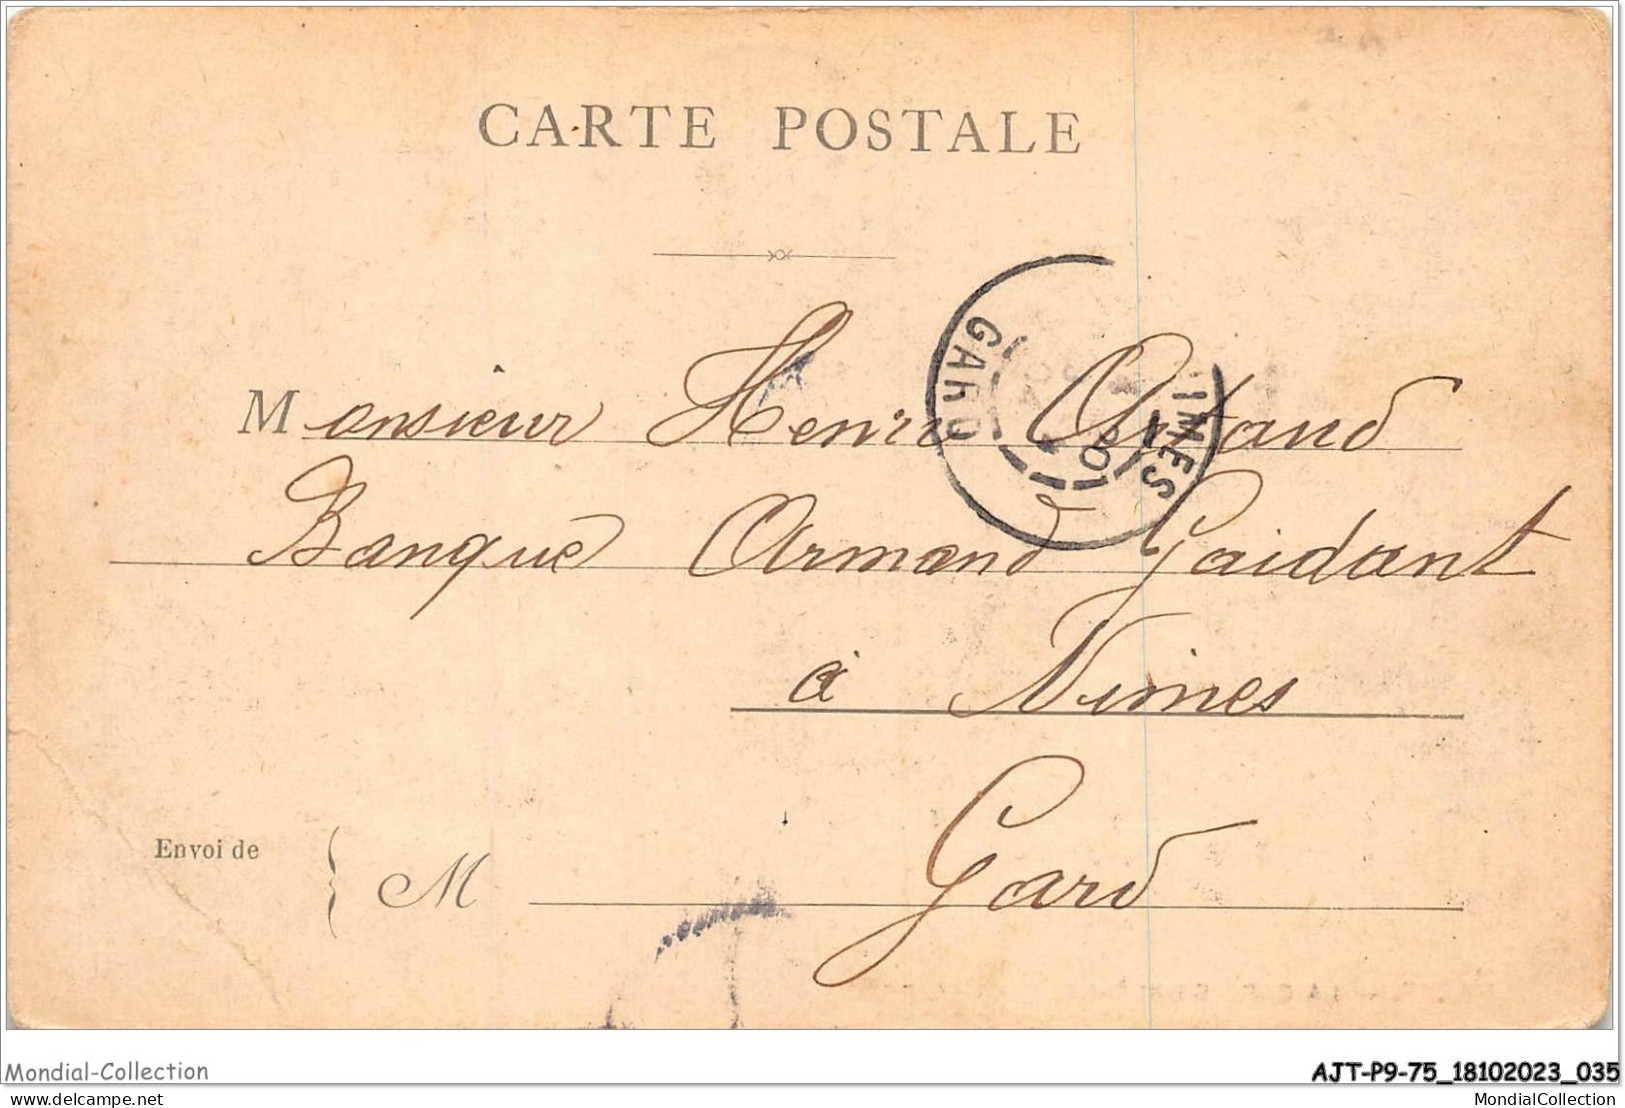 CARTE POSTALE
Monsieur Henri Artaud
GARD
IMES
Banque Armand Gaidant
à Nimes
Envoi de
M
Gard
Mondial-Collection
AJT-P9-75_18102023_035
delcampe.net
MondialCollection